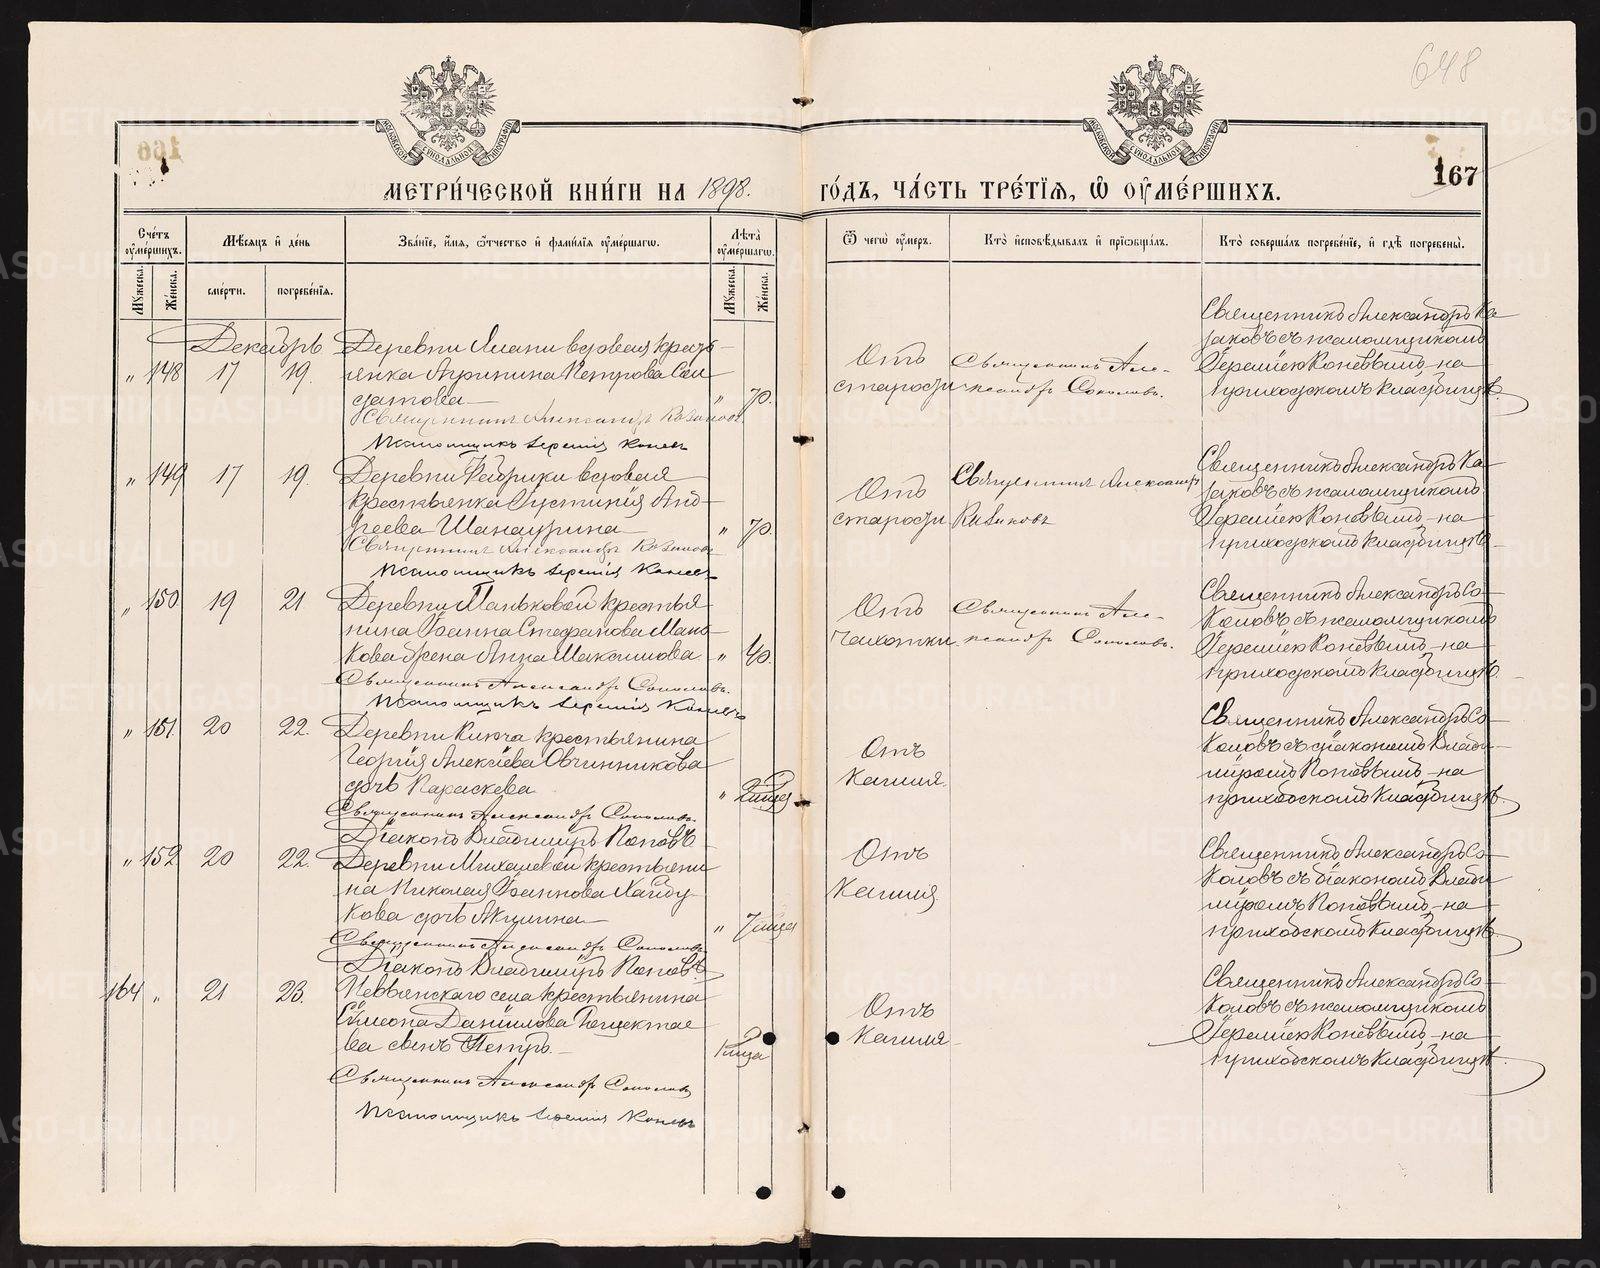 648
166
167
МЕТРИ́ЧЕСКОЙ КНИ́ГИ НА 1898.
ГО́ДЪ, ЧА́СТЬ ТРЕ́ТІѦ, Ѽ ОУ҆МЕ́РШИХЪ.
Сче́тъ оу҆ме́ршихъ.
Мѣ́сяцъ и҆ де́нь
Зва́нїе, и҆́мѧ, ѻ҆́тчество и҆ фами́лїѧ оу҆ме́ршагѡ.
Лѣ́та оу҆ме́ршагѡ.
Ѿ чегѡ̀ оу҆́меръ.
Кто̀ и҆сповѣ́дывалъ и҆ прїѡбща́лъ.
Кто̀ соверша́лъ погребе́нїе, и҆ гдѣ̀ погребены̀.
Мꙋ́жеска.
Же́нска.
сме́рти.
погребе́нїѧ.
Мꙋ́жеска.
Же́нска.
Декабрь
" 148 17 19.
Деревни вдовая кресть-
янка Петрова
датова
" 70.
Священникъ Александръ Казаковъ
Псаломщикъ Іеремія Коневъ
Отъ
старости
Священникъ Але-
ксандръ Соколовъ.
Священникъ Александръ Ка-
заковъ съ псаломщикомъ
Іереміею Коневымъ на
приходскомъ кладбищѣ.
" 149 17 19.
Деревни Фабрики вдовая
крестьянка Іустинія Анд-
реева
" 70.
Священникъ Александръ Казаковъ
Псаломщикъ Іеремія Коневъ
Отъ
старости
Священникъ Александръ
Казаковъ
Священникъ Александръ Ка-
заковъ съ псаломщикомъ
Іереміею Коневымъ на
приходскомъ кладбищѣ.
" 150 19 21
Деревни Паньковой крестья-
нина Іоанна Стефанова
кова жена Анна Максимова
" 40.
Священникъ Александръ Соколовъ.
Псаломщикъ Іеремія Коневъ
Отъ
чахотки.
Священникъ Але-
ксандръ Соколовъ.
Священникъ Александръ Со-
коловъ съ псаломщикомъ
Іереміею Коневымъ на
приходскомъ кладбищѣ.
" 151 20 22.
Деревни крестьянина
Георгія Алексѣева Овчинникова
дочь Параскева
" 2 мѣсяца
Священникъ Александръ Соколовъ.
Діаконъ Владиміръ Поповъ
Отъ
кашля.
Священникъ Александръ Со-
коловъ съ діакономъ Влади-
міромъ Поповымъ на
приходскомъ кладбищѣ.
" 152 20 22
Деревни Михалевой крестьяни-
на Николая Іоаннова Хайду-
кова дочь Акулина
" 7 мѣсяцевъ
Священникъ Александръ Соколовъ
Діаконъ Владиміръ Поповъ
Отъ
кашля
Священникъ Александръ Со-
коловъ съ діакономъ Влади-
міромъ Поповымъ на
приходскомъ кладбищѣ.
164 " 21 23.
Невьянскаго села крестьянина
Сѵмеона Даніилова
ва сынъ Петръ.
Священникъ Александръ Соколовъ
Псаломщикъ Іеремія Коневъ
Отъ
кашля
Священникъ Александръ Со-
коловъ съ псаломщикомъ
Іереміею Коневымъ на
приходскомъ кладбищѣ.